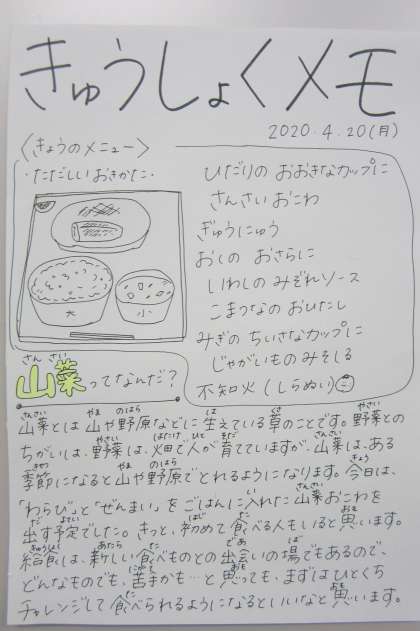 きゅうしょくメモ
2020.4.20(月)
〈きょうのメニュー〉
・ただしいおきかた・
ひだりの おおきなカップに
さんさいおこわ
ぎゅうにゅう
おくの おさらに
いわしの みぞれソース
こまつなの おひたし
みぎの ちいさなカップに
じゃがいものみそしる
不知火(しらぬい)
大
小
山菜ってなんだ?
山菜とは山や野原などに生えている草のことです。野菜との
ちがいは、野菜は、畑で人が育てていますが、山菜は、ある
季節になると山や野原でとれるようになります。今日は、
「わらび」と「ぜんまい」をごはんに入れた山菜おこわを
出す予定でした。きっと、初めて食べる人もいると思います。
給食は、新しい食べものとの出会いの場でもあるので、
どんなものでも、苦手かも…と思っても、まずはひとくち
チャレンジして食べられるようになるといいなと思います。